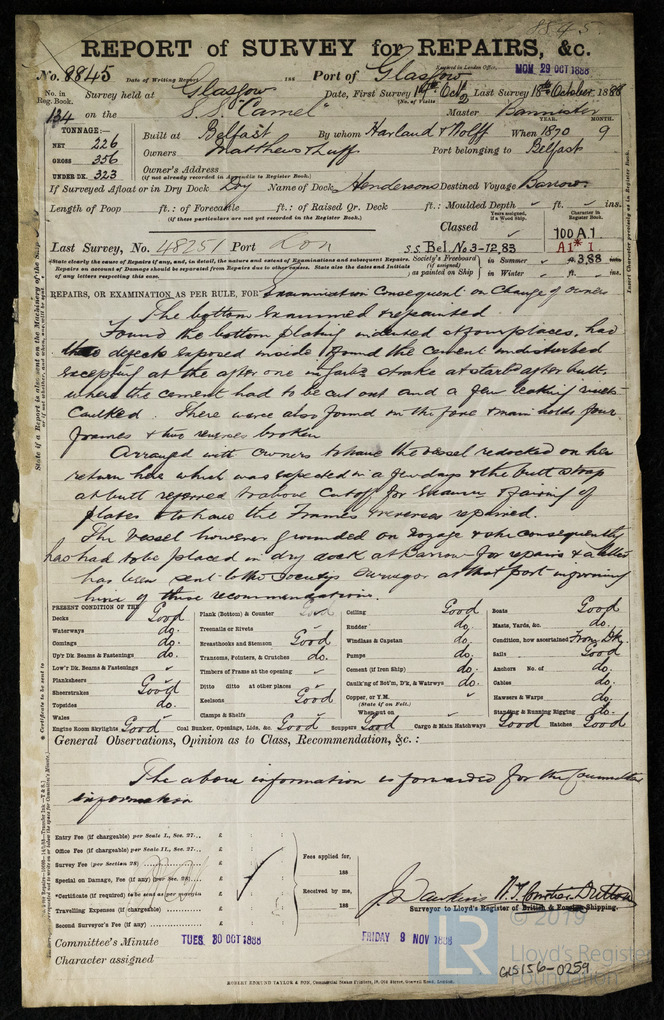 1845
REPORT of SURVEY for REPAIRS, &c.
No. 8845 Date of Writing Report 188 Port of Glasgow Received in London Office, MON 29 OCT 1888
No. in Reg. Book. Survey held at Glasgow Date, First Survey Oct 2 Last Survey 18th October 1888
(No. of Visits
134 on the S.S. "Camel" Master Bannister
TONNAGE:— YEAR. MONTH.
NET 226 Built at Belfast By whom Harland & Wolff When 1870 9
GROSS 356 Owners Matthews & Luff Port belonging to Belfast
UNDER DK. 323 Owner's Address
(if not already recorded in Appendix to Register Book.)
If Surveyed Afloat or in Dry Dock Dry Name of Dock Hendersons Destined Voyage Barrow
Length of Poop ft.: of Forecastle ft.: of Raised Qr. Deck ft.: Moulded Depth ft. ins.
(if these particulars are not yet recorded in the Register Book.)
Years assigned, if a Wood Ship. Character in Register Book.
Classed 100 A.1
Last Survey, No. 48251 Port Lon S.S. Bel. No. 3-12,83 A1* 1
State clearly the cause of Repairs, if any, and, in detail, the nature and extent of Examinations and subsequent Repairs. Society's Freeboard in Summer 3,88
Repairs on account of Damage should be separated from Repairs due to other causes. State also the dates and Initials (if assigned)
of any letters respecting this case. as painted on Ship in Winter ft. ins.
REPAIRS, OR EXAMINATION AS PER RULE, FOR Examination Consequent on Change of owners
The bottom examined & repainted.
Found the bottom plating indented at four places, had
these defects exposed inside & found the cement undisturbed
excepting at the after one in garbd strake at starbd after butt
where the cement had to be cut out and a few leaking rivets
caulked. There were also found in the fore & main holds four
frames & two reverses broken
Arranged with owners to have the vessel redocked on her
return here which was expected in a few days & the butt strap
at butt referred to above cut off for & fairing of
plates & to have the Frames & reverses repaired.
The vessel however grounded on voyage & she consequently
has had to be placed in dry dock at Barrow for repairs & a letter
has been sent to the Society's surveyor at that port informing
him of these recommendations.
PRESENT CONDITION OF THE
Decks Good
Waterways do.
Comings do.
Up'r Dk. Beams & Fastenings do.
Low'r Dk. Beams & Fastenings
Planksheers
Sheerstrakes Good
Topsides do.
Wales
Plank (Bottom) & Counter Good
Treenails or Rivets
Breasthooks and Stemson Good
Transoms, Pointers, & Crutches do.
Timbers of Frame at the opening
Ditto ditto at other places
Keelsons Good
Clamps & Shelfs
Ceiling Good
Rudder do.
Windlass & Capstan do.
Pumps do.
Cement (if Iron Ship) do.
Caulk'ng of Bot'm, D'k, & Watrwys do.
Copper, or Y.M.
(State if on Felt.)
When put on
Boats Good
Masts, Yards, &c. do.
Condition, how ascertained From Dk.
Sails Good
Anchors No. of do.
Cables do.
Hawsers & Warps do.
Standing & Running Rigging do.
Engine Room Skylights Good Coal Bunker, Openings, Lids, &c. Good Scuppers Good Cargo & Main Hatchways Good Hatches Good
General Observations, Opinion as to Class, Recommendation, &c.:
The above information is forwarded for the Committees
information
Entry Fee (if chargeable) per Scale I., Sec. 27... £
Office Fee (if chargeable) per Scale II., Sec. 27... £
Survey Fee (per Section 28) £
Special on Damage, Fee (if any) (per Sec. 28) £
*Certificate (if required) to be sent as per margin £
Travelling Expenses (if chargeable) £
Second Surveyor's Fee (if any) £
Fees applied for, 188
Received by me, 188
Surveyor to Lloyd's Register of British & Foreign Shipping.
Committee's Minute TUES 30 OCT 1888 FRIDAY 9 NOV 1888
Character assigned
ROBERT EDMUND TAYLOR & SON,
© 2019
LR Lloyd's Register Foundation
GLS156-0259